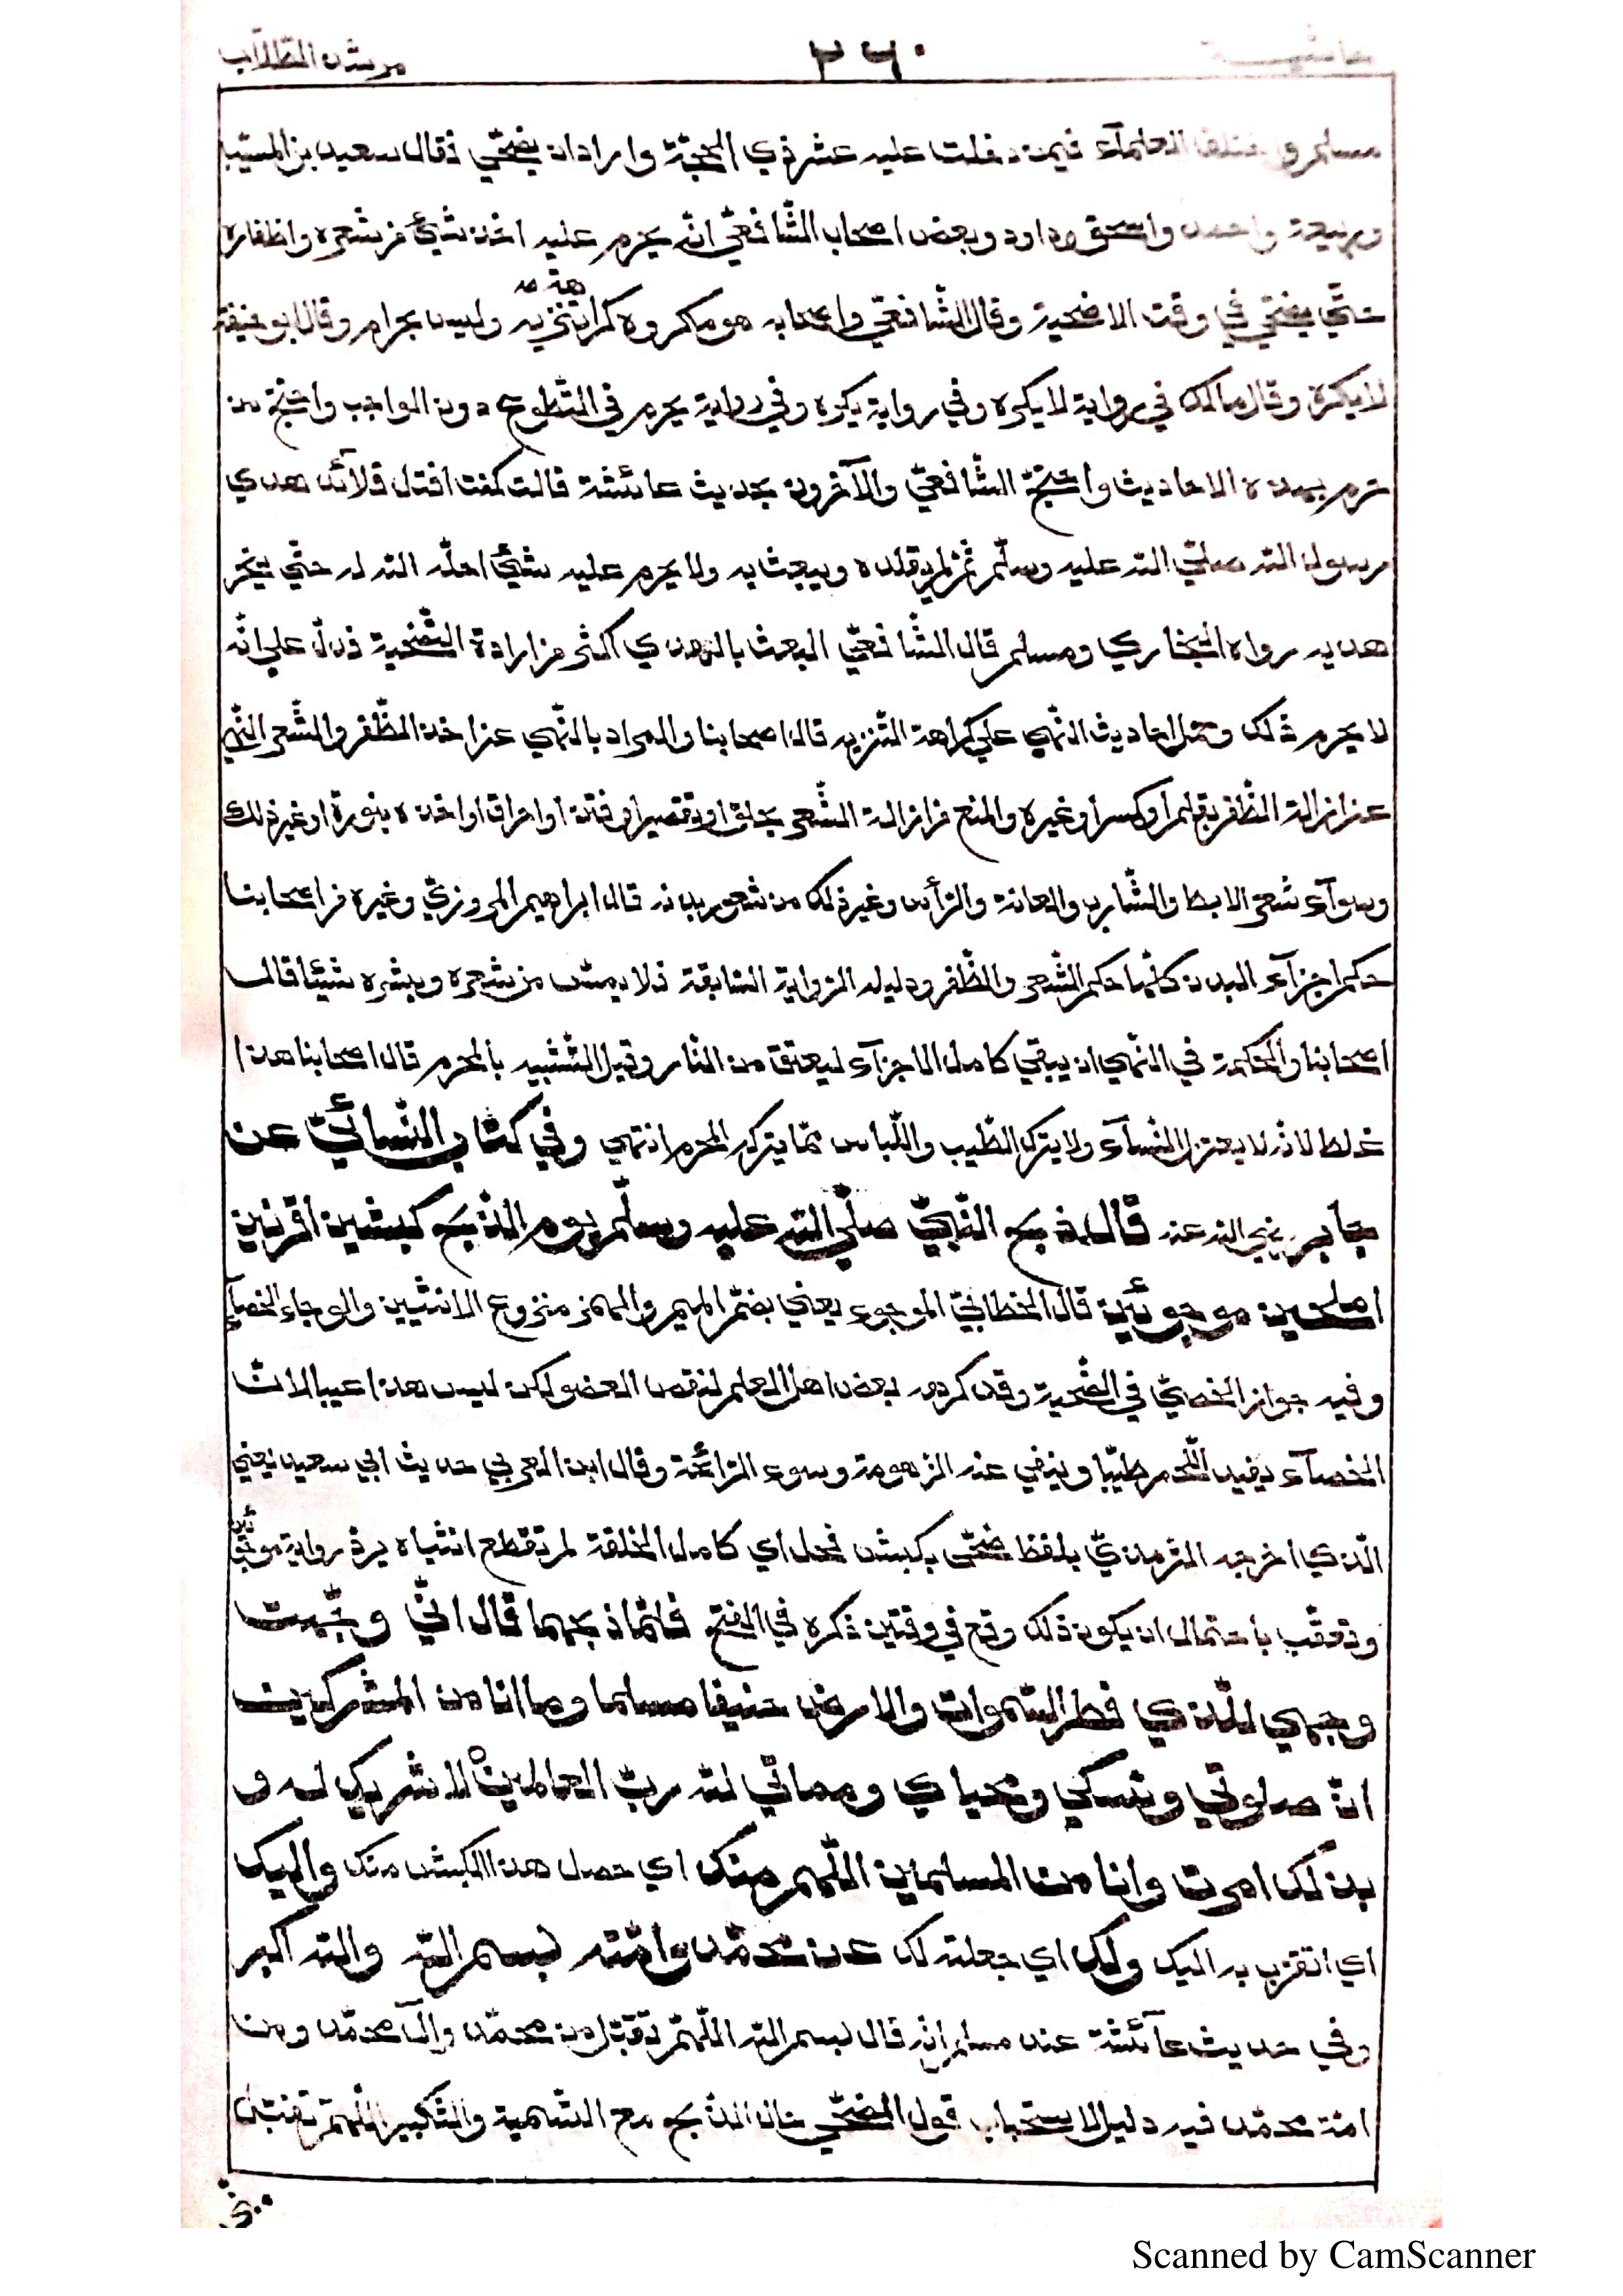 حاشية ٢٦٠ مرشد الطّلّاب
مسلم واختلف العلمآء فيمن دخلت عليه عشر ذي الحجّة واراد ان يضحّي فقال سعيد بن المسيّب
وربيعة واحمد واسحق وداود وبعض اصحاب الشّافعيّ انّه يحرم عليه اخذ شيئ من شعره واظفاره
حتّي يضحّي في وقت الاضحية وقال الشّافعيّ واصحابه هو مكروه كراهة تنزيه وليس بحرام وقال ابو حنيفة
لا يكره وقال مالك في رواية لا يكره وفي رواية يكره وفي رواية يحرم في التّطوع دون الواجب واحتجّ من
حرم بهذه الاحاديث واحتجّ الشّافعيّ والآخرون بحديث عائشة قالت كنت افتل قلآئد هدي
رسول الله صلّي الله عليه وسلّم ثمّ يقلده ويبعث به ولا يحرم عليه شيئ احلّه الله له حتّي ينحر
هديه رواه البخاري ومسلم قال الشّافعيّ البعث بالهدي اكثر من ارادة التّضحية فدلّ علي انّه
لا يحرم ذلك وحمل احاديث النّهي علي كراهة التّنزيه قال اصحابنا والمراد بالنّهي عن اخذ الظّفر والشّعر النّهي
عن ازالة الظّفر بقلم او كسر او غيره والمنع من ازالة الشّعر بحلق او تقصير او نتف او احراق او اخذه بنورة او غير ذلك
وسوآء شعر الابط والشّارب والعانة والرّأس وغير ذلك من شعور بدنه قال ابراهيم المروزيّ وغيره من اصحابنا
حكم اجزآء البدن كلّها حكم الشّعر والظّفر ودليله الرّواية السّابقة فلا يمسّ من شعره وبشره شيئا قال
اصحابنا والحكمة في النّهي ان يبقي كامل الاجزآء ليعتق من النّار وقيل التّشبيه بالمحرم قال اصحابنا هذا
غلط لانّه لا يعتزل النّسآء ولا يترك الطّيب واللّباس ممّا يتركه المحرم انتهي وفي كتاب النّسائيّ عن
جابر رضي الله عنه قال ذبح النّبيّ صلّي الله عليه وسلّم يوم الذّبح كبشين اقرنين
املحين موجوئين قال الخطابيّ الموجوء يعني بضمّ الجيم والهمز منزوع الانثيين والوجاء الخصآء
وفيه جواز الخصيّ في الضّحية وقد كرهه بعض اهل العلم لنقص العضو لكن ليس هذا عيبا لان
الخصآء يفيد اللّحم طيبا وينفي عنه الزّهومة وسوء الرّائحة وقال ابن العربي حديث ابي سعيد يعني
الّذي اخرجه التّرمذيّ بلفظ ضحّي بكبش فحل اي كامل الخلقة لم تقطع انثياه يردّ رواية موجوئين
وتعقّب باحتمال ان يكون ذلك وقع في وقتين ذكره في الفتح فلمّا ذبحهما قال انّي وجّهت
وجهي للّذي فطر السّموات والارض حنيفا مسلما وما انا من المشركين
انّ صلوتي ونسكي ومحياي ومماتي لله ربّ العالمين لا شريك له و
بذلك امرت وانا من المسلمين اللّهمّ منك اي حصل هذا الكبش منك واليك
اي اتقرّب به اليك ولك اي جعلته لك عن محمّد وامّته بسم الله والله اكبر
وفي حديث عآئشة عند مسلم انّه قال بسم الله اللّهمّ تقبّل من محمّد وآل محمّد ومن
امّة محمّد فيه دليل لاستحباب قول المضحّي حال الذّبح مع التّسمية والتّكبير اللّهمّ تقبّل
Scanned by CamScanner